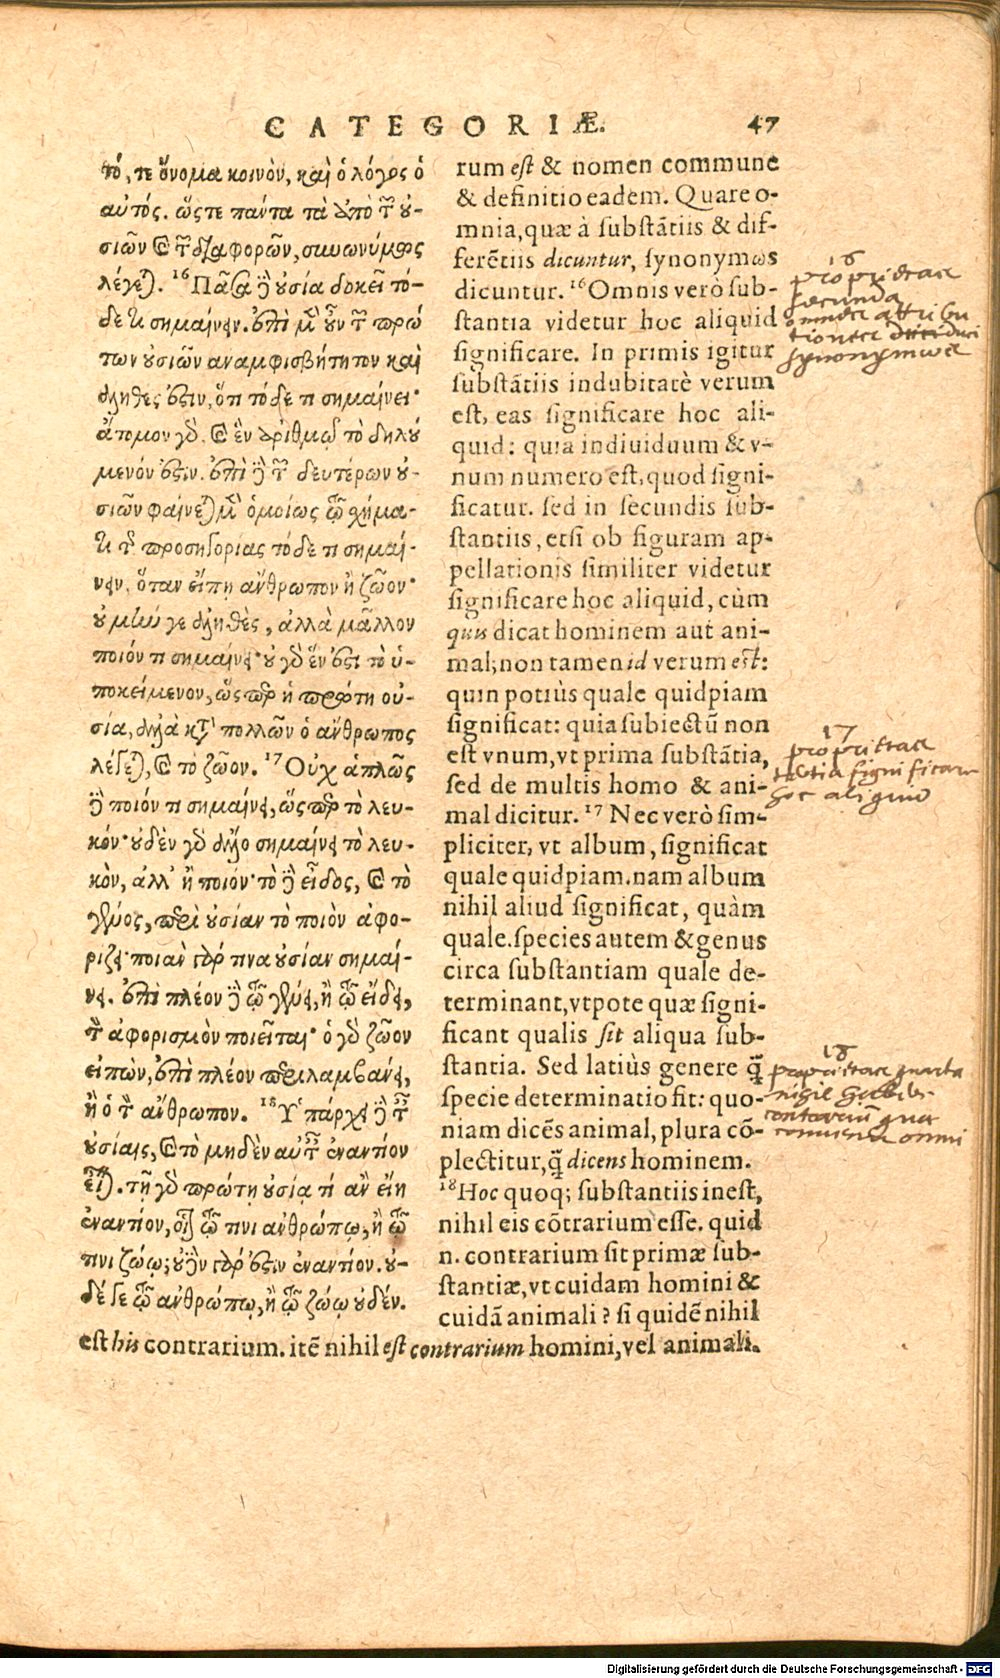 CATEGORIÆ. 47
τό, τε ὄνομα κοινὸν, καὶ ὁ λόγος ὁ
αὐτός. ὥςτε πάντα τὰ ἀπὸ τῶν ȣ̓-
σιῶν καὶ τῶν διαφορῶν, συνωνύμως
λέγεται. ¹⁶ Πᾶσα δὲ ȣ̓σία δοκεῖ τό-
δε τι σημαίνειν. ἐπὶ μὲν ȣ̓͂ν τῶν πρώ
των ȣ̓σιῶν ἀναμφισβήτητον καὶ
ἀληθές ἐστιν, ὅτι τόδε τι σημαίνει·
ἄτομον γὰρ καὶ ἓν ἀριθμῷ τὸ δηλȣ́
μενόν ἐστιν. ἐπὶ δὲ τῶν δευτέρων ȣ̓-
σιῶν φαίνεται μὲν ὁμοίως τῷ σχήμα-
τι τῆς προσηγορίας τόδε τι σημαί-
νειν, ὅταν εἴπῃ ἄνθρωπον ἢ ζῶον·
ȣ̓ μὴν γε ἀληθὲς, ἀλλὰ μᾶλλον
ποιόν τι σημαίνει· ȣ̓ γὰρ ἕν ἐστι τὸ ὑ-
ποκείμενον, ὥςπερ ἡ πρώτη οὐ-
σία, ἀλλὰ κατὰ πολλῶν ὁ ἄνθρωπος
λέγεται, καὶ τὸ ζῶον. ¹⁷ Οὐχ ἁπλῶς
δὲ ποιόν τι σημαίνει, ὥςπερ τὸ λευ-
κόν· ȣ̓δὲν γὰρ ἄλλο σημαίνει τὸ λευ-
κὸν, ἀλλ' ἢ ποιόν· τὸ δὲ εἶδος, καὶ τὸ
γένος, περὶ ȣ̓σίαν τὸ ποιὸν ἀφο-
ρίζει· ποιὰν γάρ τινα ȣ̓σίαν σημαί-
νει. ἐπὶ πλέον δὲ τῷ γένει, ἢ τῷ εἴδει,
τὸν ἀφορισμὸν ποιεῖται· ὁ γὰρ ζῶον
εἰπὼν, ἐπὶ πλέον περιλαμβάνει,
ἢ ὁ τὸν ἄνθρωπον. ¹⁸ Ὑπάρχει δὲ ταῖς
ȣ̓σίαις, καὶ τὸ μηδὲν αὐταῖς ἐναντίον
εἶναι. τῇ γὰρ πρώτῃ ȣ̓σίᾳ τί ἂν εἴη
ἐναντίον, οἷον τῷ τινι ἀνθρώπῳ, ἢ τῷ
τινι ζώῳ; ȣ̓δὲν γάρ ἐστιν ἐναντίον. ȣ̓-
δέ γε τῷ ἀνθρώπῳ, ἢ τῷ ζώῳ ȣ̓δέν.
rum est & nomen commune
& definitio eadem. Quare o-
mnia, quæ à substātiis & dif-
ferētiis dicuntur, synonymως
dicuntur. ¹⁶Omnis verò sub-
stantia videtur hoc aliquid
significare. In primis igitur
substātiis indubitatè verum
est, eas significare hoc ali-
quid: quia indiuiduum & v-
num numero est, quod signi-
ficatur. sed in secundis sub-
stantiis, etsi ob figuram ap-
pellationis similiter videtur
significare hoc aliquid, cùm
quis dicat hominem aut ani-
mal; non tamen id verum est:
quin potiùs quale quidpiam
significat: quia subiectū non
est vnum, vt prima substātia,
sed de multis homo & ani-
mal dicitur. ¹⁷ Nec verò sim-
pliciter, vt album, significat
quale quidpiam. nam album
nihil aliud significat, quàm
quale. species autem & genus
circa substantiam quale de-
terminant, vtpote quæ signi-
ficant qualis sit aliqua sub-
stantia. Sed latiùs genere q̃
specie determinatio fit: quo-
niam dicēs animal, plura cō-
plectitur, q̃ dicens hominem.
¹⁸Hoc quoq; substantiis inest,
nihil eis cōtrarium esse. quid
n. contrarium sit primæ sub-
stantiæ, vt cuidam homini &
cuidā animali? si quidē nihil
est his contrarium. itē nihil est contrarium homini, vel animali.
16
proprietas
secunda
omnes attribu
tiones dici
synonymως
17
proprietas
tertia significare
hoc aliquid
18
proprietas quarta
nihil habere
contrarium quae
omni
Digitalisierung gefördert durch die Deutsche Forschungsgemeinschaft - DFG